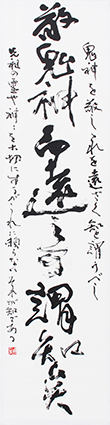 鬼神を敬しこれを遠ざく知と謂うべし
敬鬼神而遠之可謂知矣
先祖の霊や神々を大切にするがこれに頼らない それが知である